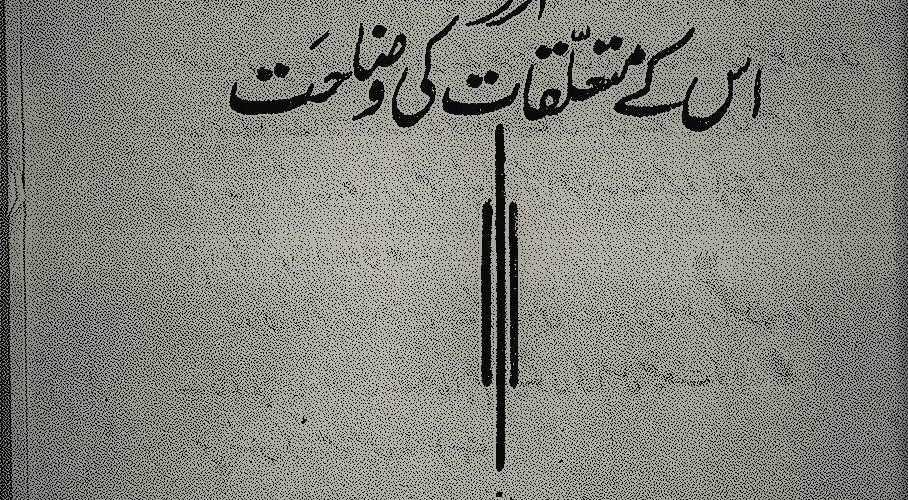 اور
اس کے متعلّقات کی وضاحَت